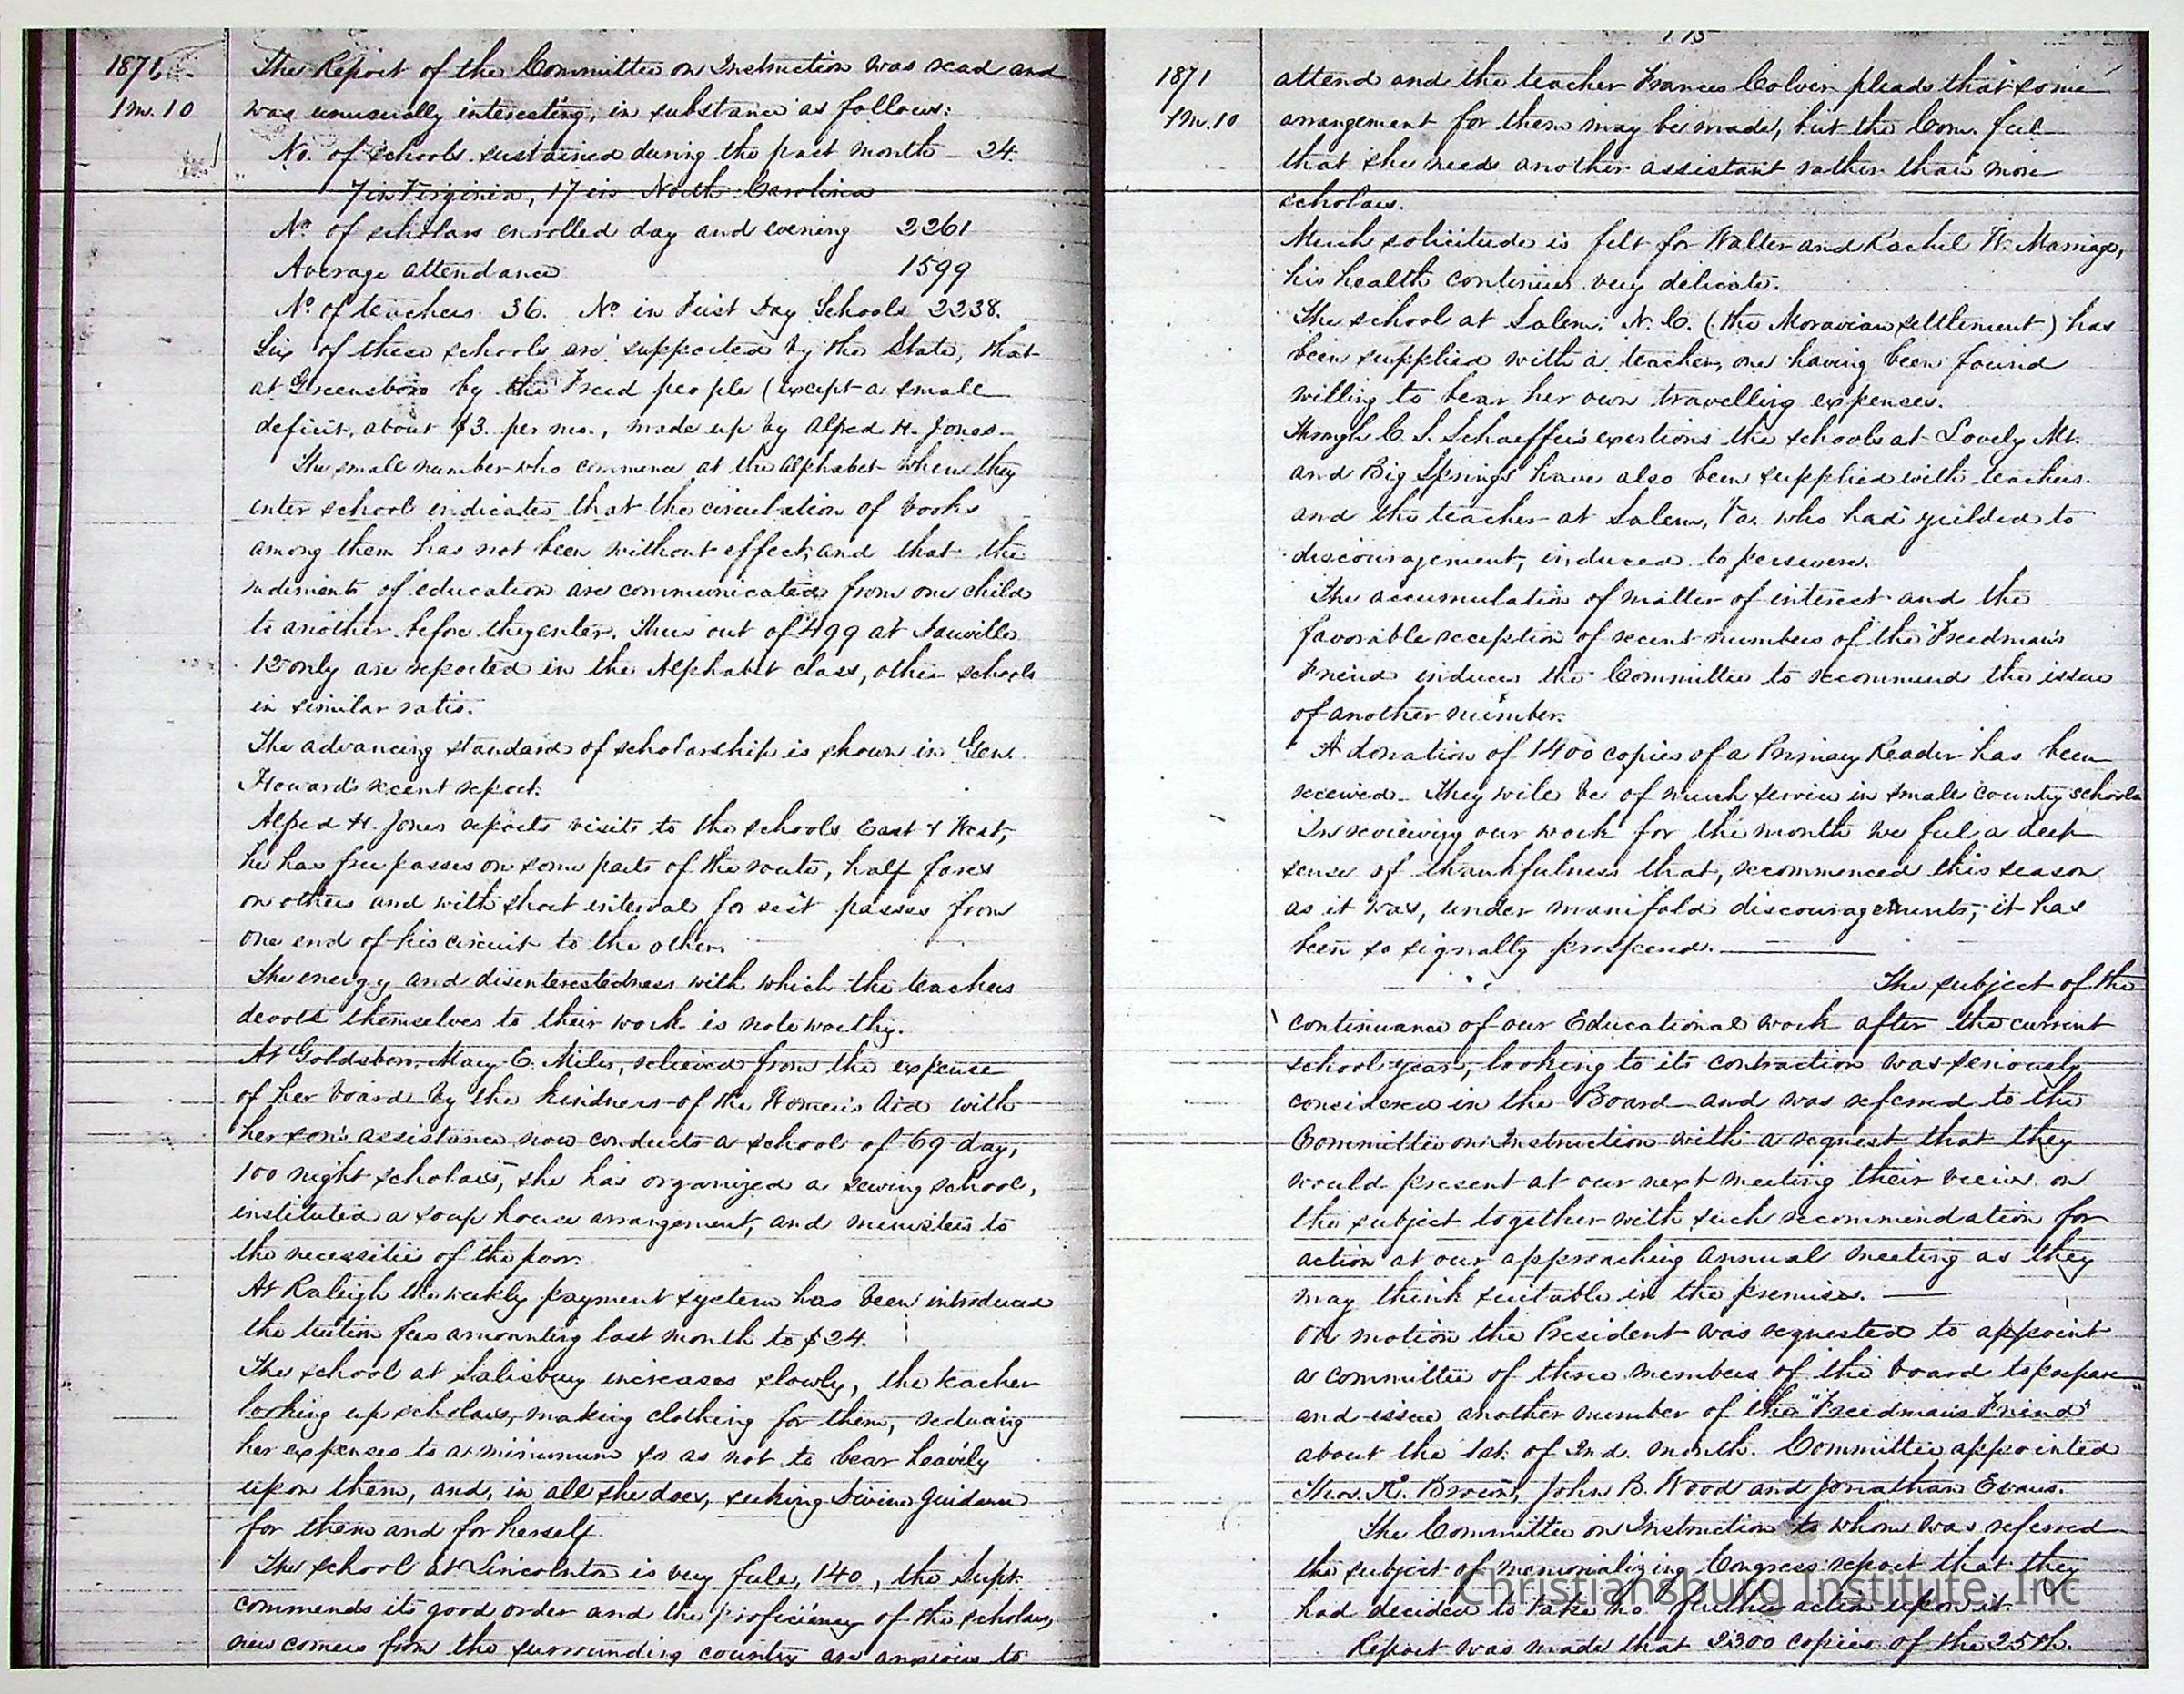 1871,
1 m. 10
The Report of the Committee on Instruction was read and
was unusually interesting, in substance as follows:
No. of schools sustained during the past month - 24.
7 in Virginia, 17 in North Carolina
No. of scholars enrolled day and evening 2261
Average attendance 1599
No. of teachers 36. No. in First Day Schools 2238.
Six of these schools are supported by the State, that
at Greensboro by the Freed people (except a small
deficit, about $3. per mo., made up by Alfred H. Jones-
The small number who commence at the Alphabet when they
enter school indicates that the circulation of books
among them has not been without effect, and that the
rudiments of education are communicated from one child
to another before they enter. Thus out of 499 at Danville
12 only are reported in the Alphabet class, other schools
in similar ratio.
The advancing standard of scholarship is shown in Gen.
Howard's recent report.
Alfred H. Jones reports visits to the schools East & West,
he has free passes on some parts of the route, half fares
on others and with short interval for rest passes from
one end of his circuit to the other.
The energy and disinterestedness with which the teachers
devote themselves to their work is noteworthy.
At Goldsboro, Mary E. Miles, relieved from the expense
of her board by the kindness of the Women's Aid with
her son's assistance now conducts a school of 69 day,
100 night scholars, she has organized a sewing school,
instituted a soup house arrangement, and ministers to
the necessities of the poor.
At Raleigh the weekly payment system has been introduced
the tuition fees amounting last month to $24.
The school at Salisbury increases slowly, the teacher
looking up scholars, making clothing for them, reducing
her expenses to a minimum so as not to bear heavily
upon them, and, in all she does, seeking Divine guidance
for them and for herself.
The school at Lincolnton is very full, 140, the Supt.
commends its good order and the proficiency of the scholars,
new comers from the surrounding country are anxious to
115
1871
1 m. 10
attend and the teacher Frances Colver pleads that some
arrangement for them may be made, but the Com. feel
that she needs another assistant rather than more
scholars.
Much solicitude is felt for Walter and Rachel W. Marriage,
his health continues very delicate.
The school at Salem, N. C. (the Moravian settlement) has
been supplied with a teacher, one having been found
willing to bear her own travelling expenses.
Through C. S. Schaeffer's exertions the schools at Lovely Mt.
and Big Springs have also been supplied with teachers.
and the teacher at Salem, Va. who had yielded to
discouragement, induced to persevere.
The accumulation of matter of interest and the
favorable reception of recent numbers of the "Freedman's
Friend induces the Committee to recommend the issue
of another number.
A donation of 1400 copies of a Primary Reader has been
received. They will be of much service in small county schools
In reviewing our work for the month we feel a deep
sense of thankfulness that, recommenced this season
as it was, under manifold discouragements, it has
been so signally prospered.
The subject of the
continuance of our Educational work after the current
school year, looking to its contraction was seriously
considered in the Board and was referred to the
Committee on Instruction with a request that they
would present at our next meeting their views on
the subject together with such recommendation for
action at our approaching annual meeting as they
may think suitable in the premises.
On motion the President was requested to appoint
a committee of three members of the board to prepare
and issue another number of the "Freedman's Friend"
about the 1st. of 2nd. month. Committee appointed
Thos. K. Brown, John B. Wood and Jonathan Evans.
The Committee on Instruction to whom was referred
the subject of memorializing Congress report that they
had decided to take no further action upon it.
Report was made that 2300 copies of the 25th.
Christiansburg Institute, Inc